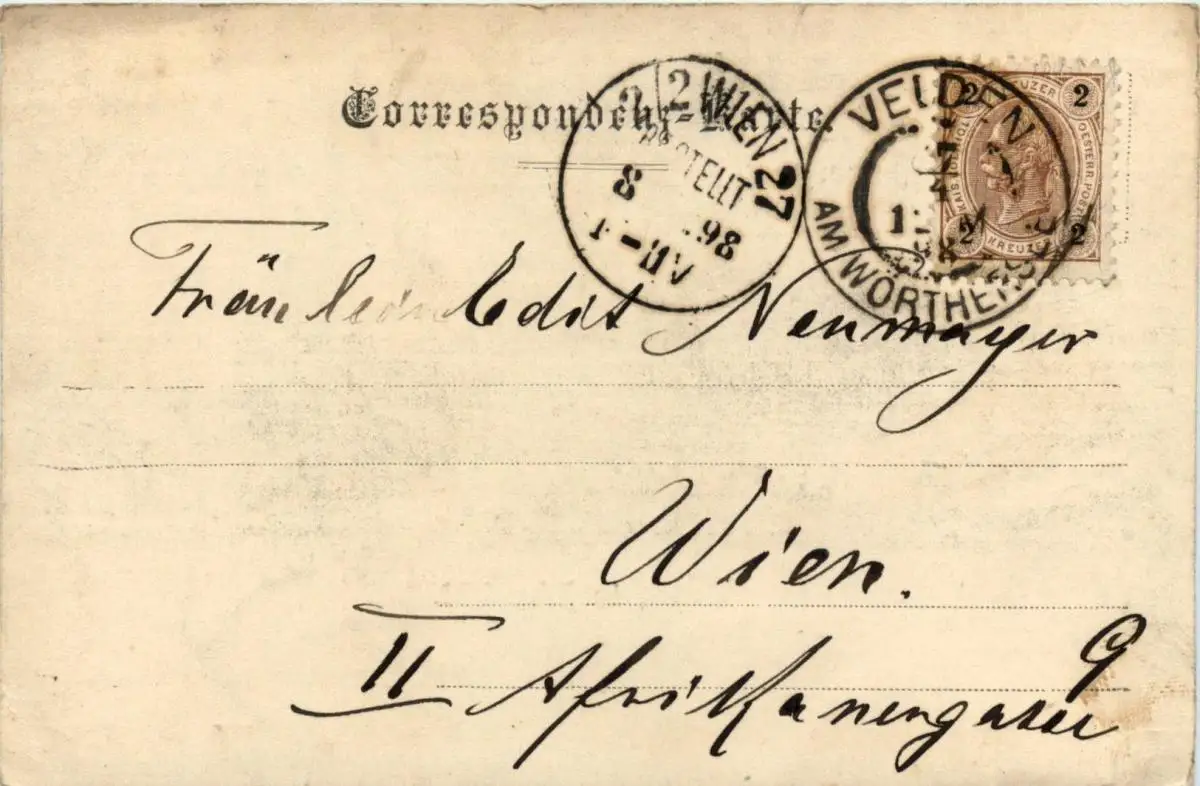 Correspondenz-Karte.
2 2 WIEN 27
BESTELLT
3 98
VELDEN
AM WÖRTHERSEE
2 KREUZER 2
KAIS. KÖNIGL. OESTERR. POST
2 KREUZER 2
Fräulein Edit Neumayer
Wien.
II Afrikanergasse 9